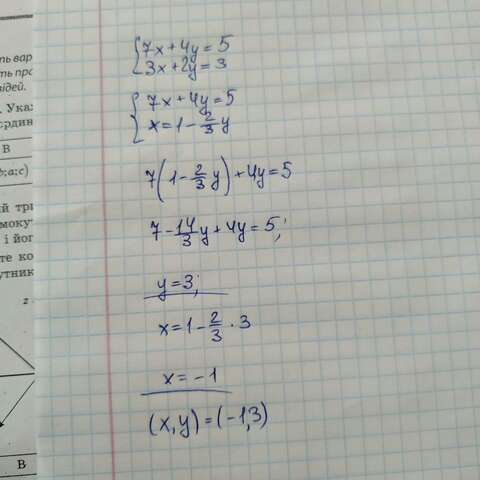 ть вар
ть про
ідей.
. Ука
рдин
В
b;a;c)
ий три
мокут
і йог
те ко
утник
2
В
7x+4y=5
3x+2y=3
7x+4y=5
x=1-2/3y
7(1-2/3y)+4y=5
7-14/3y+4y=5;
y=3;
x=1-2/3·3
x=-1
(x,y)=(-1,3)